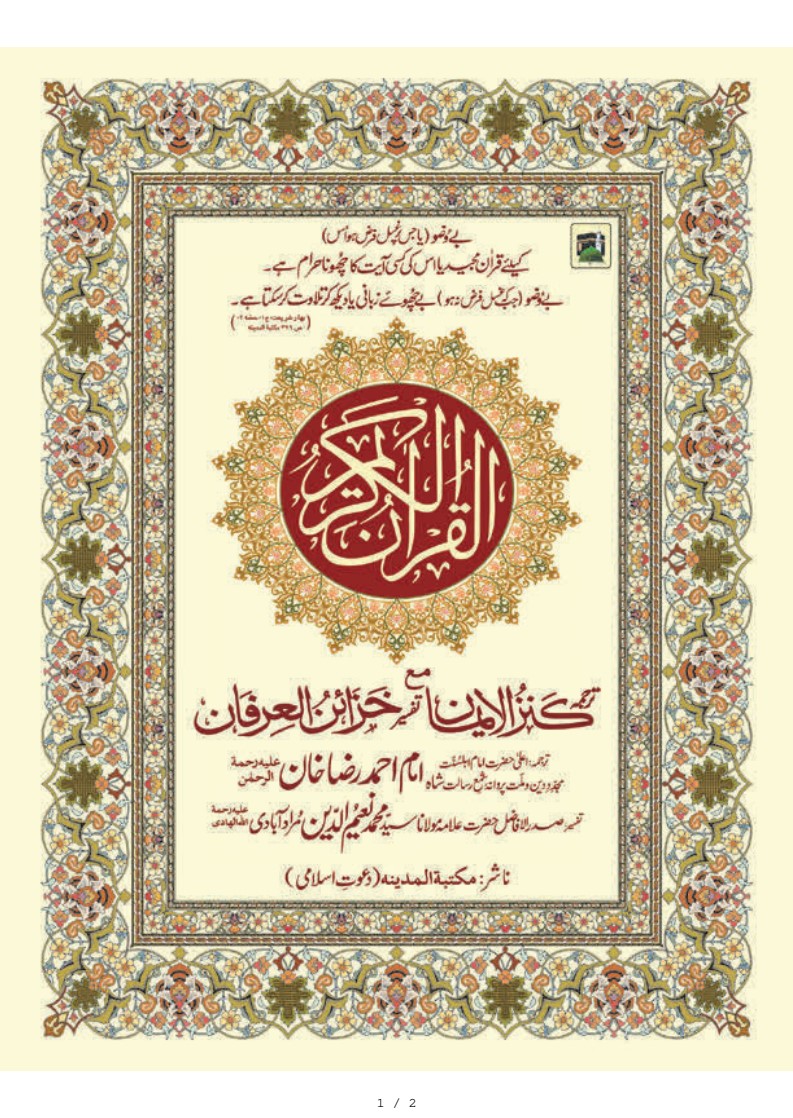 بے وضو (یا جس پر غسل فرض ہو اُس)
کیلئے قراٰن مجید یا اس کی کسی آیت کا چھونا حرام ہے۔
بے وضو (جبکہ غسل فرض نہ ہو) بے چھوئے زبانی یا دیکھ کر تلاوت کر سکتا ہے۔
(بہارِ شریعت، ج۱، حصہ ۲،
ص ۳۲۶ مکتبۃ المدینہ)
القرآن الکریم
ترجمہ کنزُالایمان مع تفسیر خزائنُ العِرفان
ترجمہ: اعلیٰ حضرت امام اہلسنّت
مجدّدِ دین و ملّت پروانۂ شمعِ رسالت شاہ امام احمد رضا خان علیہ رحمۃ الرحمٰن
تفسیر: صدرالافاضل حضرت علامہ مولانا سیّد محمد نعیمُ الدّین مُراد آبادی علیہ رحمۃ اللہ الہادی
ناشر: مکتبۃ المدینہ (دعوتِ اسلامی)
1 / 2